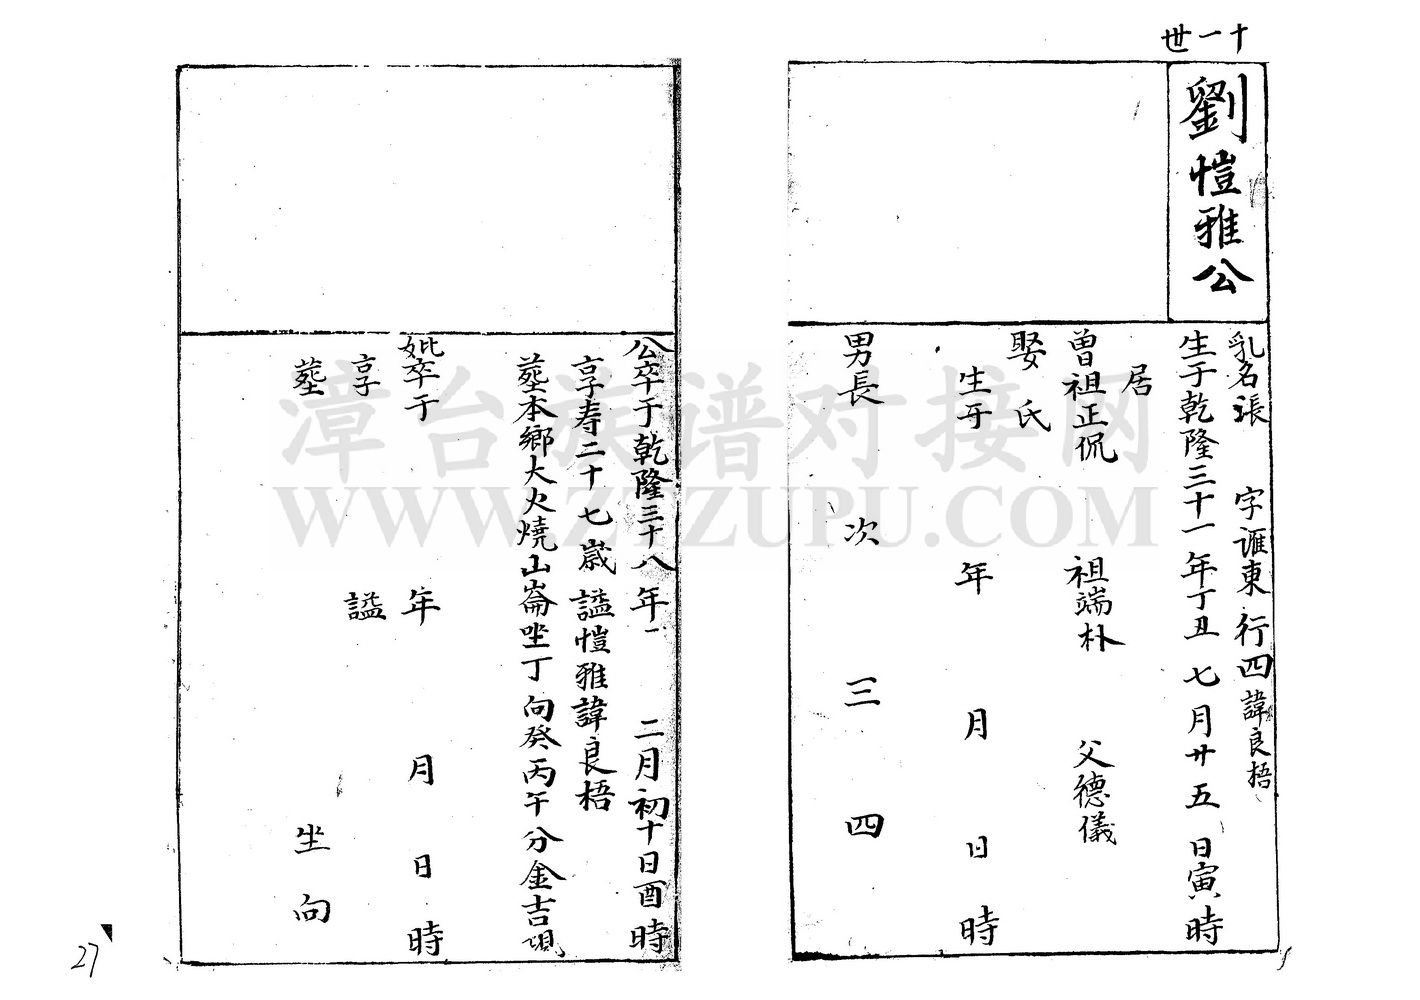 十一世
劉愷雅公
乳名漲 字滙東 行四 諱良梧
生于乾隆三十一年丁丑七月廿五日寅時
居
曾祖正侃 祖端朴 父德儀
娶 氏
生于 年 月 日 時
男長 次 三 四
公卒于乾隆三十八年 二月初十日酉時
享寿二十七歲 諡愷雅諱良梧
塟本鄉大火燒山崙坐丁向癸丙午分金吉
妣卒于 年 月 日 時
享 諡
塟 坐 向
27
漳台族谱对接网
WWW.ZTZUPU.COM